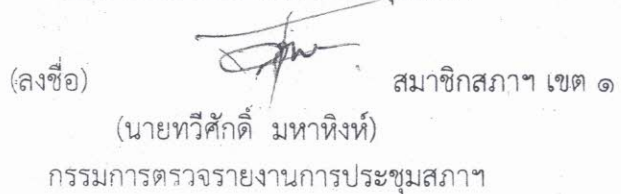 (ลงชื่อ) สมาชิกสภาฯ เขต ๑
(นายทวีศักดิ์ มหาหิงห์)
กรรมการตรวจรายงานการประชุมสภาฯ